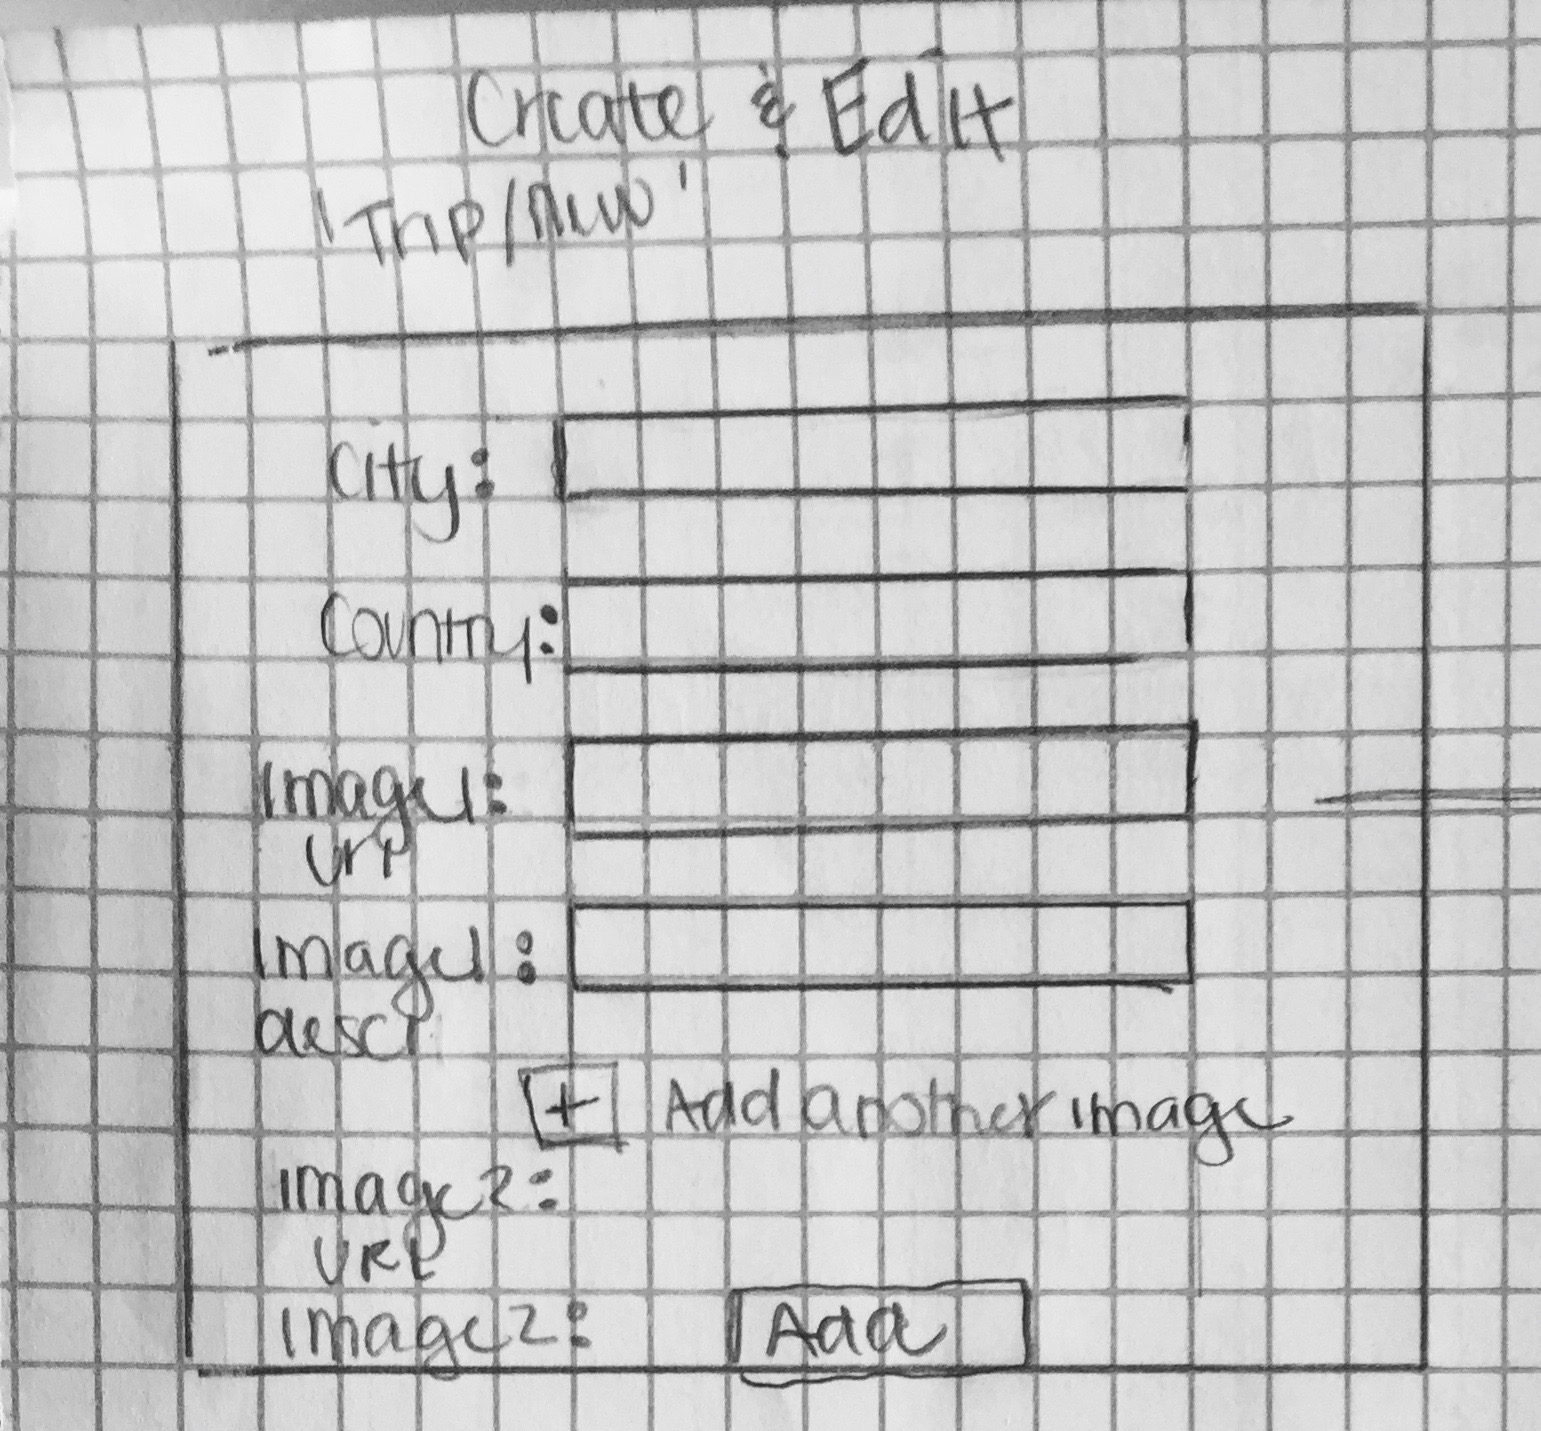 Create & Edit
'Trip/new'
City:
Country:
Image1:
url
Image1:
descr
+ Add another image
image2:
URL
image2:
Add